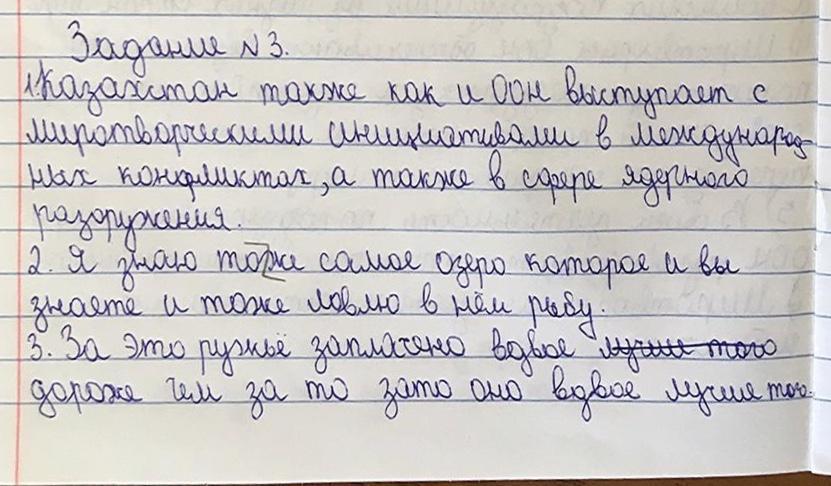 Задание №3.
1. Казахстан также как и ООН выступает с
миротворческими инициативами в международ-
ных конфликтах, а также в сфере ядерного
разоружения.
2. Я знаю то же самое озеро которое и вы
знаете и тоже ловлю в нём рыбу.
3. За это ружьё заплачено вдвое лучше того
дороже чем за то зато оно вдвое лучше того.